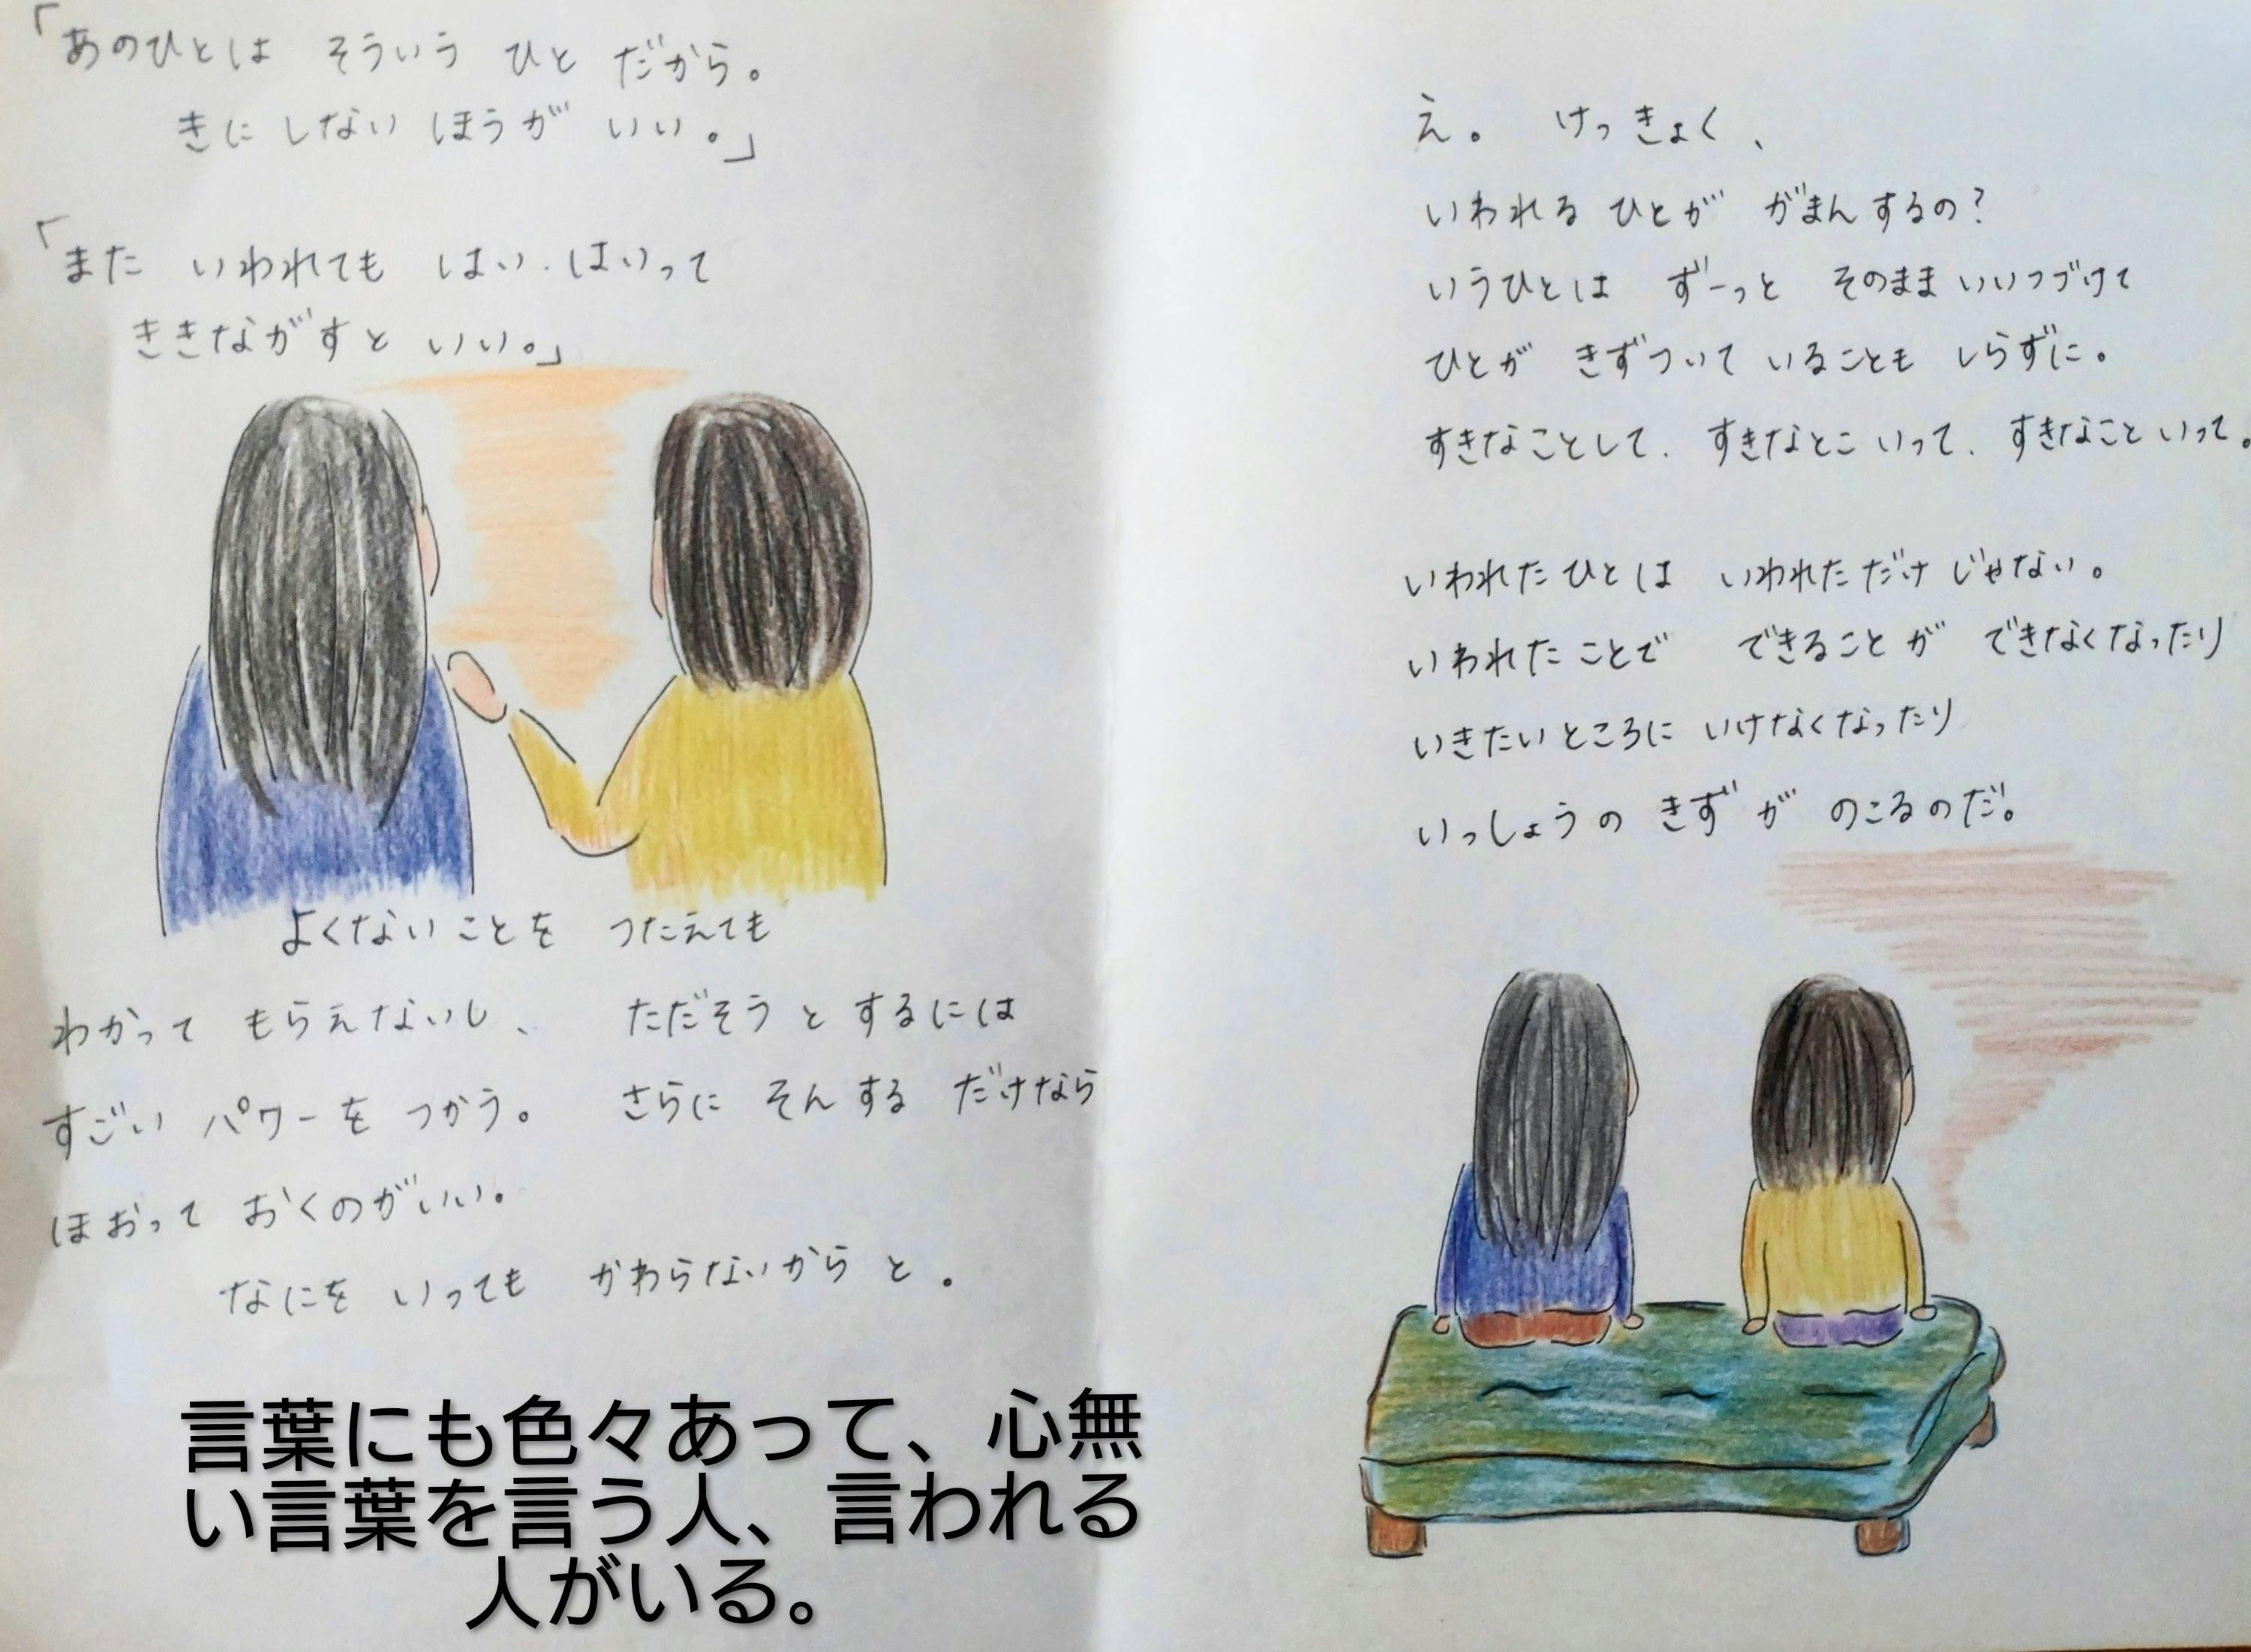 「あのひとは そういう ひと だから。
きに しない ほうが いい。」
「また いわれても はい.はいって
ききながすと いい。」
よくないことを つたえても
わかって もらえないし、 ただそう とするには
すごい パワーを つかう。 さらに そんする だけなら
ほおって おくのがいい。
なにを いっても かわらないから と。
言葉にも色々あって、心無
い言葉を言う人、言われる
人がいる。
え。 けっきょく、
いわれる ひとが がまんするの?
いうひとは ずーっと そのまま いいつづけて
ひとが きずついて いることも しらずに。
すきなことして. すきなとこ いって. すきなこと いって。
いわれた ひとは いわれただけ じゃない。
いわれた ことで できることが できなくなったり
いきたいところに いけなくなったり
いっしょうの きずが のこるのだ。